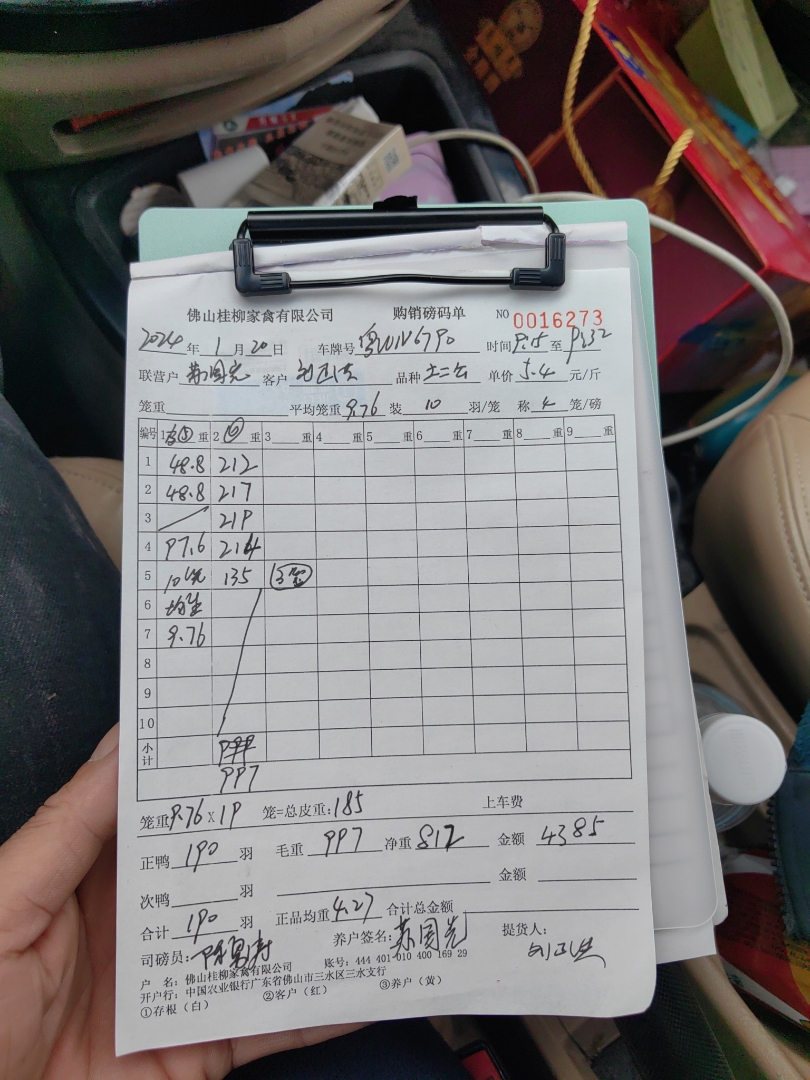 佛山桂柳家禽有限公司 购销磅码单 NO 0016273
2024年1月20日 车牌号 粤 时间9:15至9:32
联营户 苏国光 客户 品种 土二 单价 5.4 元/斤
笼重 平均笼重9.76 装 10 羽/笼 称 4 笼/磅
编号 1 ⑤ 重 2 重 3 重 4 重 5 重 6 重 7 重 8 重 9 重
1 48.8 212
2 48.8 217
3 219
4 97.6 214
5 10 135
6
7 9.76
8
9
10
小计
997
笼重9.76 x 19 笼=总皮重:185 上车费
正鸭 190 羽 毛重 997 净重 812 金额 4385
次鸭 羽 金额
合计 190 羽 正品均重4.27 合计总金额
司磅员: 养户签名:苏国光 提货人:
户 名:佛山桂柳家禽有限公司 账号:444 401 010 400 169 29
开户行:中国农业银行广东省佛山市三水区三水支行
①存根(白) ②客户(红) ③养户(黄)